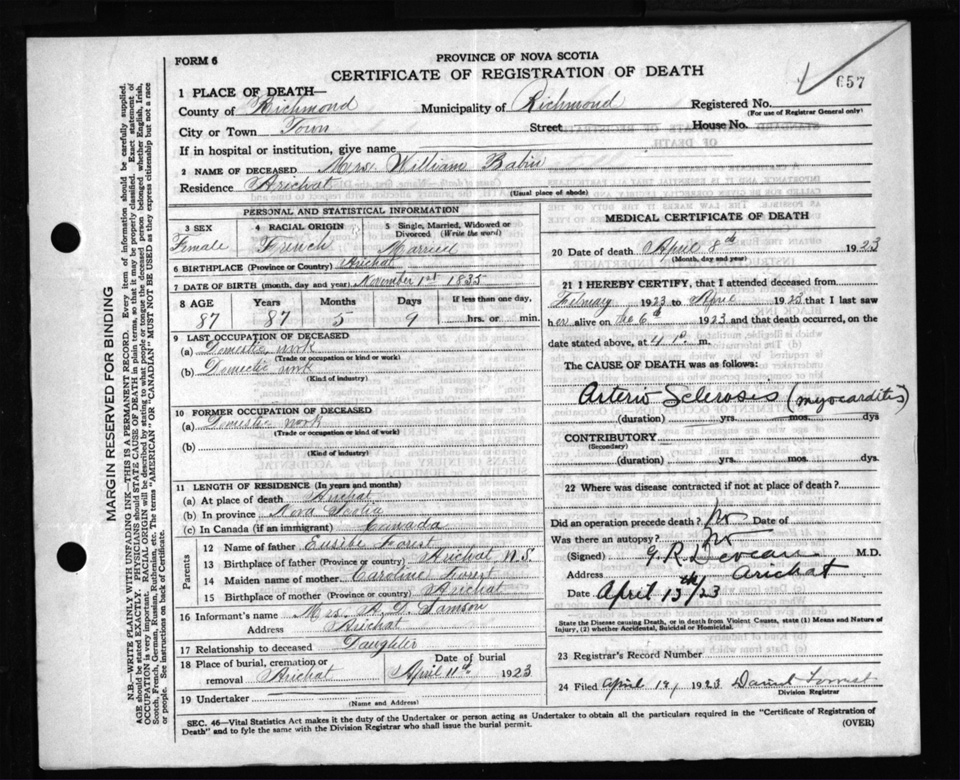 FORM 6
PROVINCE OF NOVA SCOTIA
CERTIFICATE OF REGISTRATION OF DEATH
657
1 PLACE OF DEATH—
County of Richmond Municipality of Richmond Registered No.
(For use of Registrar General only)
City or Town Town Street House No.
If in hospital or institution, give name
2 NAME OF DECEASED Mrs. William Babin
Residence Arichat
(Usual place of abode)
PERSONAL AND STATISTICAL INFORMATION
3 SEX 4 RACIAL ORIGIN 5 Single, Married, Widowed or Divorced (Write the word)
Female French Married
6 BIRTHPLACE (Province or Country) Arichat
7 DATE OF BIRTH (month, day and year) November 1st 1835
8 AGE Years Months Days If less than one day,
87 87 5 9 hrs. or min.
9 LAST OCCUPATION OF DECEASED
(a) Domestic work
(Trade or occupation or kind or work)
(b) Domestic work
(Kind of industry)
10 FORMER OCCUPATION OF DECEASED
(a) Domestic work
(Trade or occupation or kind of work)
(b)
(Kind of industry)
11 LENGTH OF RESIDENCE (In years and months)
(a) At place of death Arichat
(b) In province Nova Scotia
(c) In Canada (if an immigrant) Canada
Parents
12 Name of father Eusibe Forest
13 Birthplace of father (Province or country) Arichat N.S.
14 Maiden name of mother Caroline Forest
15 Birthplace of mother (Province or country) Arichat
16 Informant's name Mrs. A. D. Samson
Address Arichat
17 Relationship to deceased Daughter
18 Place of burial, cremation or removal Arichat
Date of burial
April 11th 1923
19 Undertaker
(Name and Address)
MEDICAL CERTIFICATE OF DEATH
20 Date of death April 8th 1923
(Month, day and year)
21 I HEREBY CERTIFY, that I attended deceased from
February 1923 to April 1923 that I last saw
her alive on the 6th 1923 and that death occurred, on the
date stated above, at 4 P. m.
The CAUSE OF DEATH was as follows:
Arterio Sclerosis (myocarditis)
(duration) yrs. mos. dys
CONTRIBUTORY
(Secondary)
(duration) yrs. mos. dys.
22 Where was disease contracted if not at place of death?
Did an operation precede death? No Date of
Was there an autopsy? No
(Signed) G. R. Deveau M.D.
Address Arichat
Date April 13th/23
State the Disease causing Death, or in death from Violent Causes, state (1) Means and Nature of Injury, (2) whether Accidental, Suicidal or Homicidal.
23 Registrar's Record Number
24 Filed April 19, 1923 David Forrest
Division Registrar
SEC. 46—Vital Statistics Act makes it the duty of the Undertaker or person acting as Undertaker to obtain all the particulars required in the "Certificate of Registration of
Death" and to fyle the same with the Division Registrar who shall issue the burial permit.
(OVER)
MARGIN RESERVED FOR BINDING
N.B.—WRITE PLAINLY WITH UNFADING INK—THIS IS A PERMANENT RECORD. Every item of information should be carefully supplied.
AGE should be stated EXACTLY. PHYSICIANS should STATE CAUSE OF DEATH in plain terms, so that it may be properly classified. Exact statement of
OCCUPATION is very important. RACIAL ORIGIN will be described by stating to what people or tongue the deceased person belonged whether English, Irish,
Scotch, French, German, Russian, Ruthenian, etc. The terms "AMERICAN" OR "CANADIAN" MUST NOT BE USED as they express citizenship but not a race
or people. See instructions on back of Certificate.